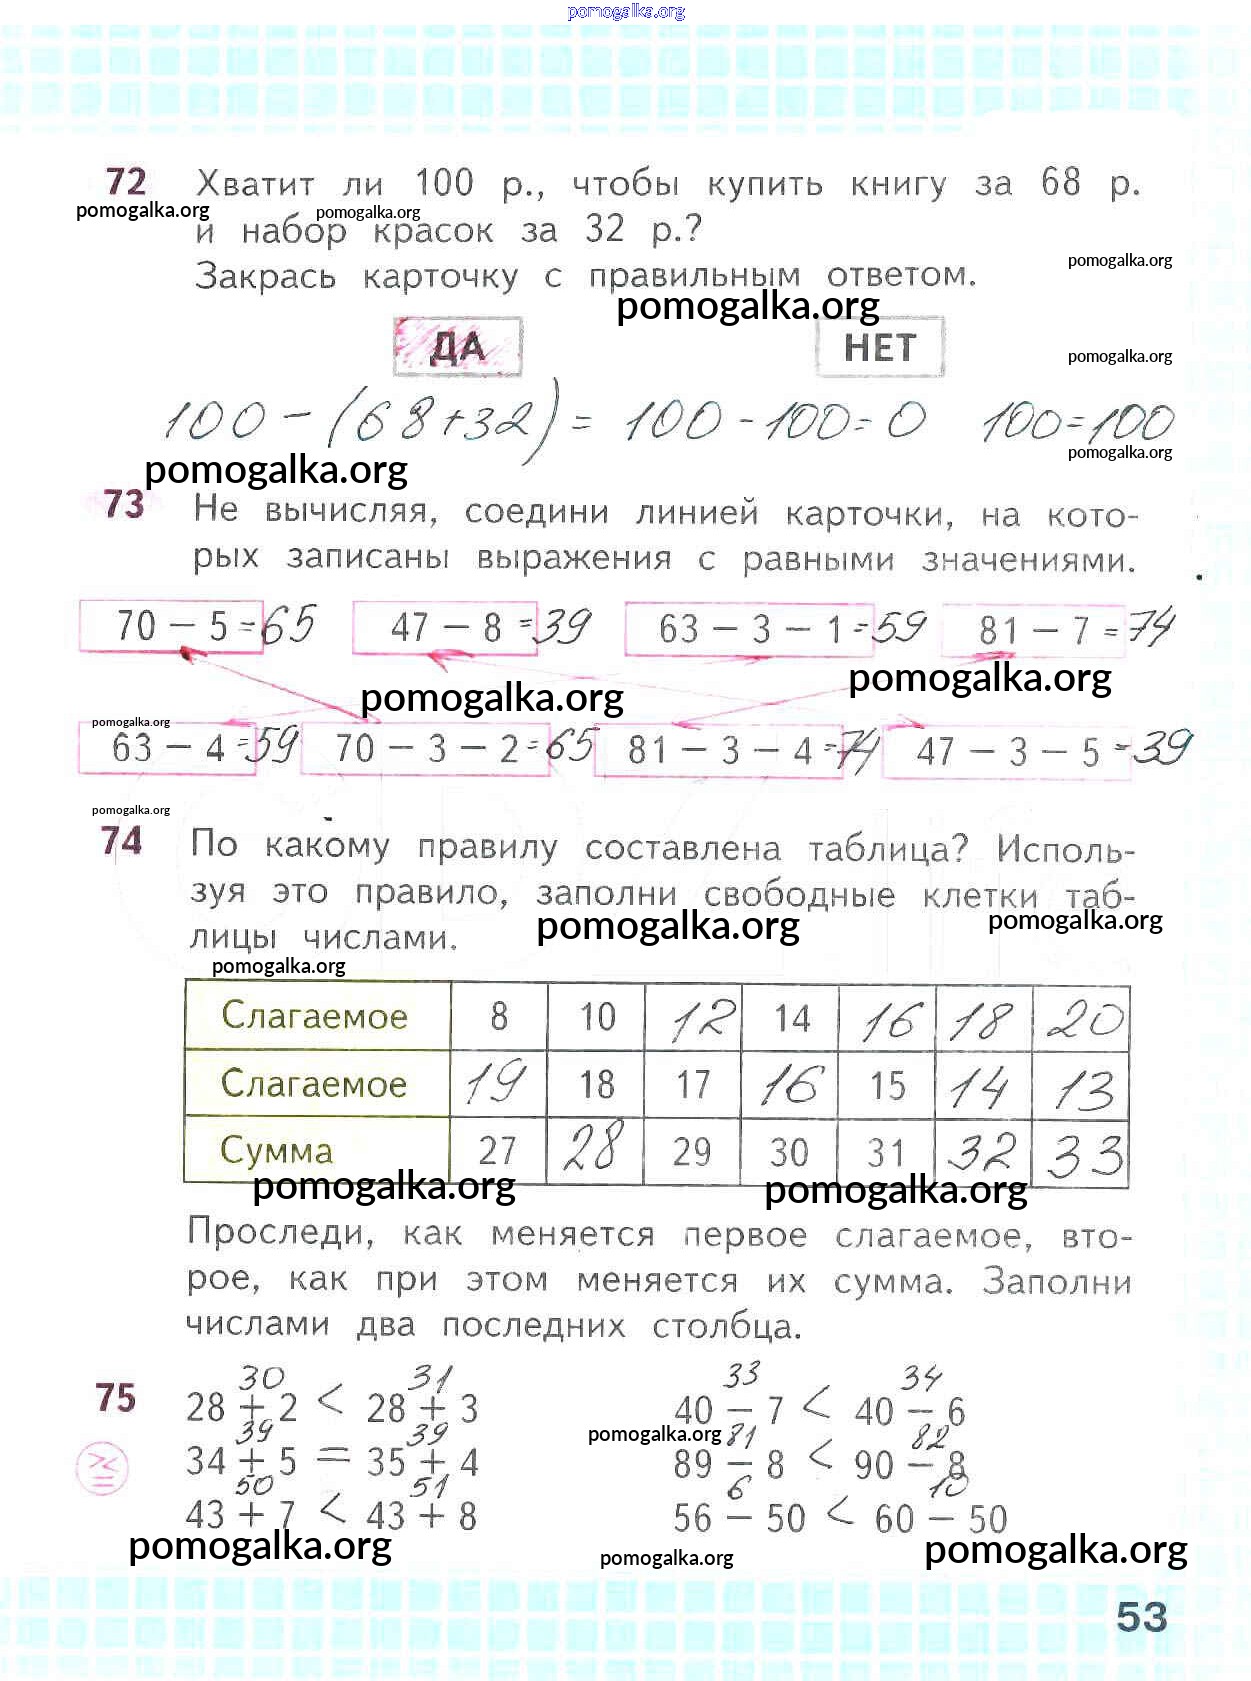 pomogalka.org
72 Хватит ли 100 р., чтобы купить книгу за 68 р.
pomogalka.org pomogalka.org
и набор красок за 32 р.?
pomogalka.org
Закрась карточку с правильным ответом.
pomogalka.org
ДА НЕТ
pomogalka.org
100 - (68+32) = 100 - 100 = 0 100=100
pomogalka.org
pomogalka.org
73 Не вычисляя, соедини линией карточки, на кото-
рых записаны выражения с равными значениями.
70 – 5 =65 47 – 8 =39 63 – 3 – 1 =59 81 – 7 =74
pomogalka.org pomogalka.org
pomogalka.org
63 – 4 =59 70 – 3 – 2 =65 81 – 3 – 4 =74 47 – 3 – 5 =39
pomogalka.org
74 По какому правилу составлена таблица? Исполь-
зуя это правило, заполни свободные клетки таб-
pomogalka.org pomogalka.org
лицы числами.
pomogalka.org
Слагаемое 8 10 12 14 16 18 20
Слагаемое 19 18 17 16 15 14 13
Сумма 27 28 29 30 31 32 33
pomogalka.org pomogalka.org
Проследи, как меняется первое слагаемое, вто-
рое, как при этом меняется их сумма. Заполни
числами два последних столбца.
30 31 33 34
75 28 + 2 < 28 + 3 40 – 7 < 40 – 6
39 39 pomogalka.org 81 82
>< = 34 + 5 = 35 + 4 89 – 8 < 90 – 8
50 51 6 10
43 + 7 < 43 + 8 56 – 50 < 60 – 50
pomogalka.org pomogalka.org pomogalka.org
53